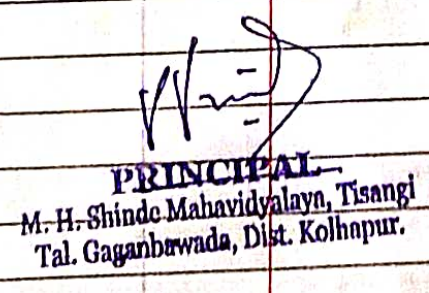 PRINCIPAL
M. H. Shinde Mahavidyalaya, Tisangi
Tal. Gaganbawada, Dist. Kolhapur.